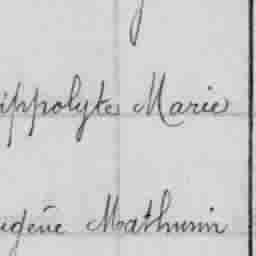 ippolyte Marie
ugène Mathurin